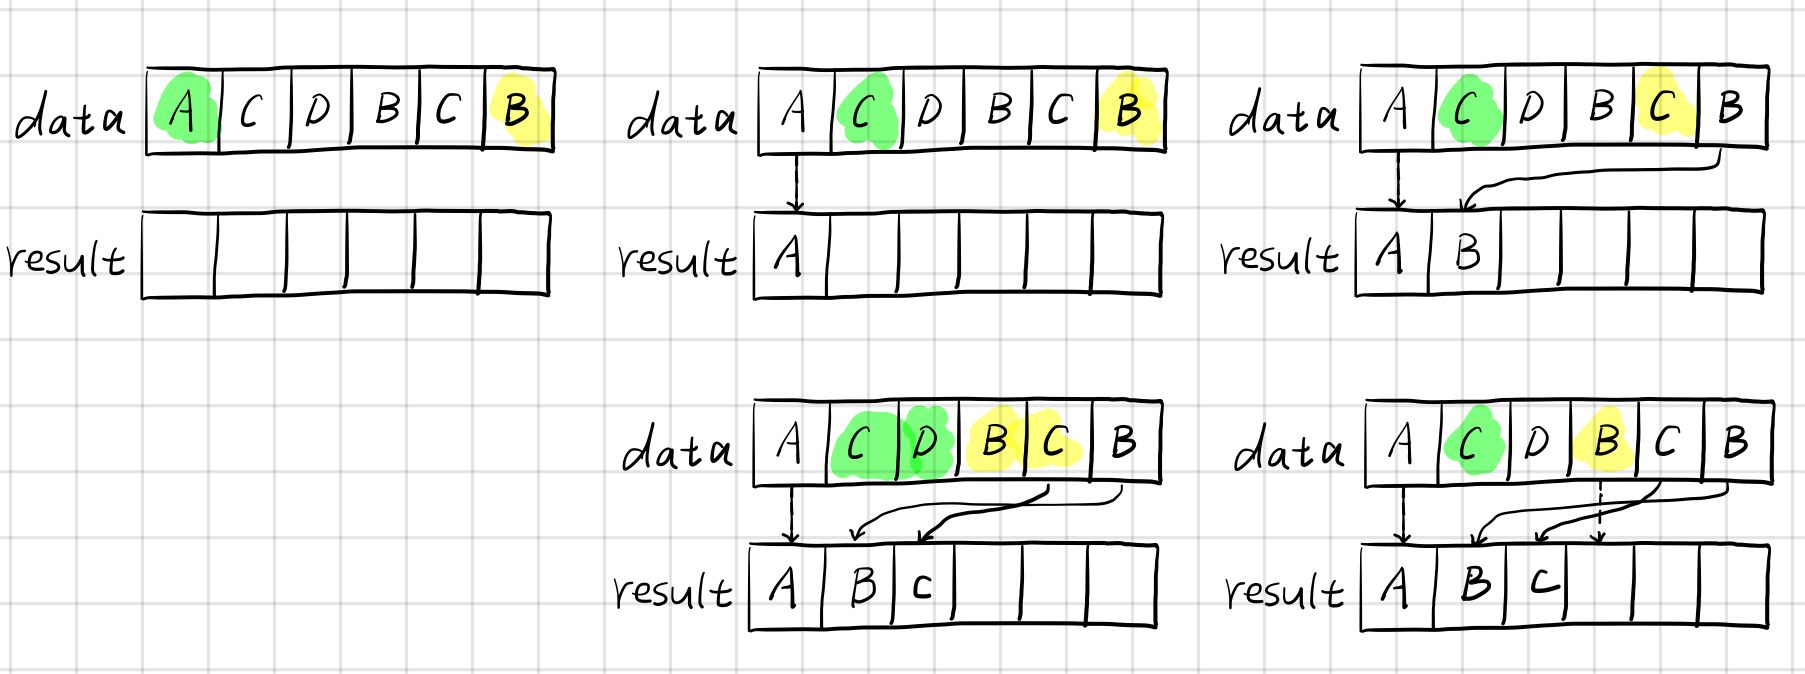 data A C D B C B
result
data A C D B C B
result A
data A C D B C B
result A B
data A C D B C B
result A B C
data A C D B C B
result A B C